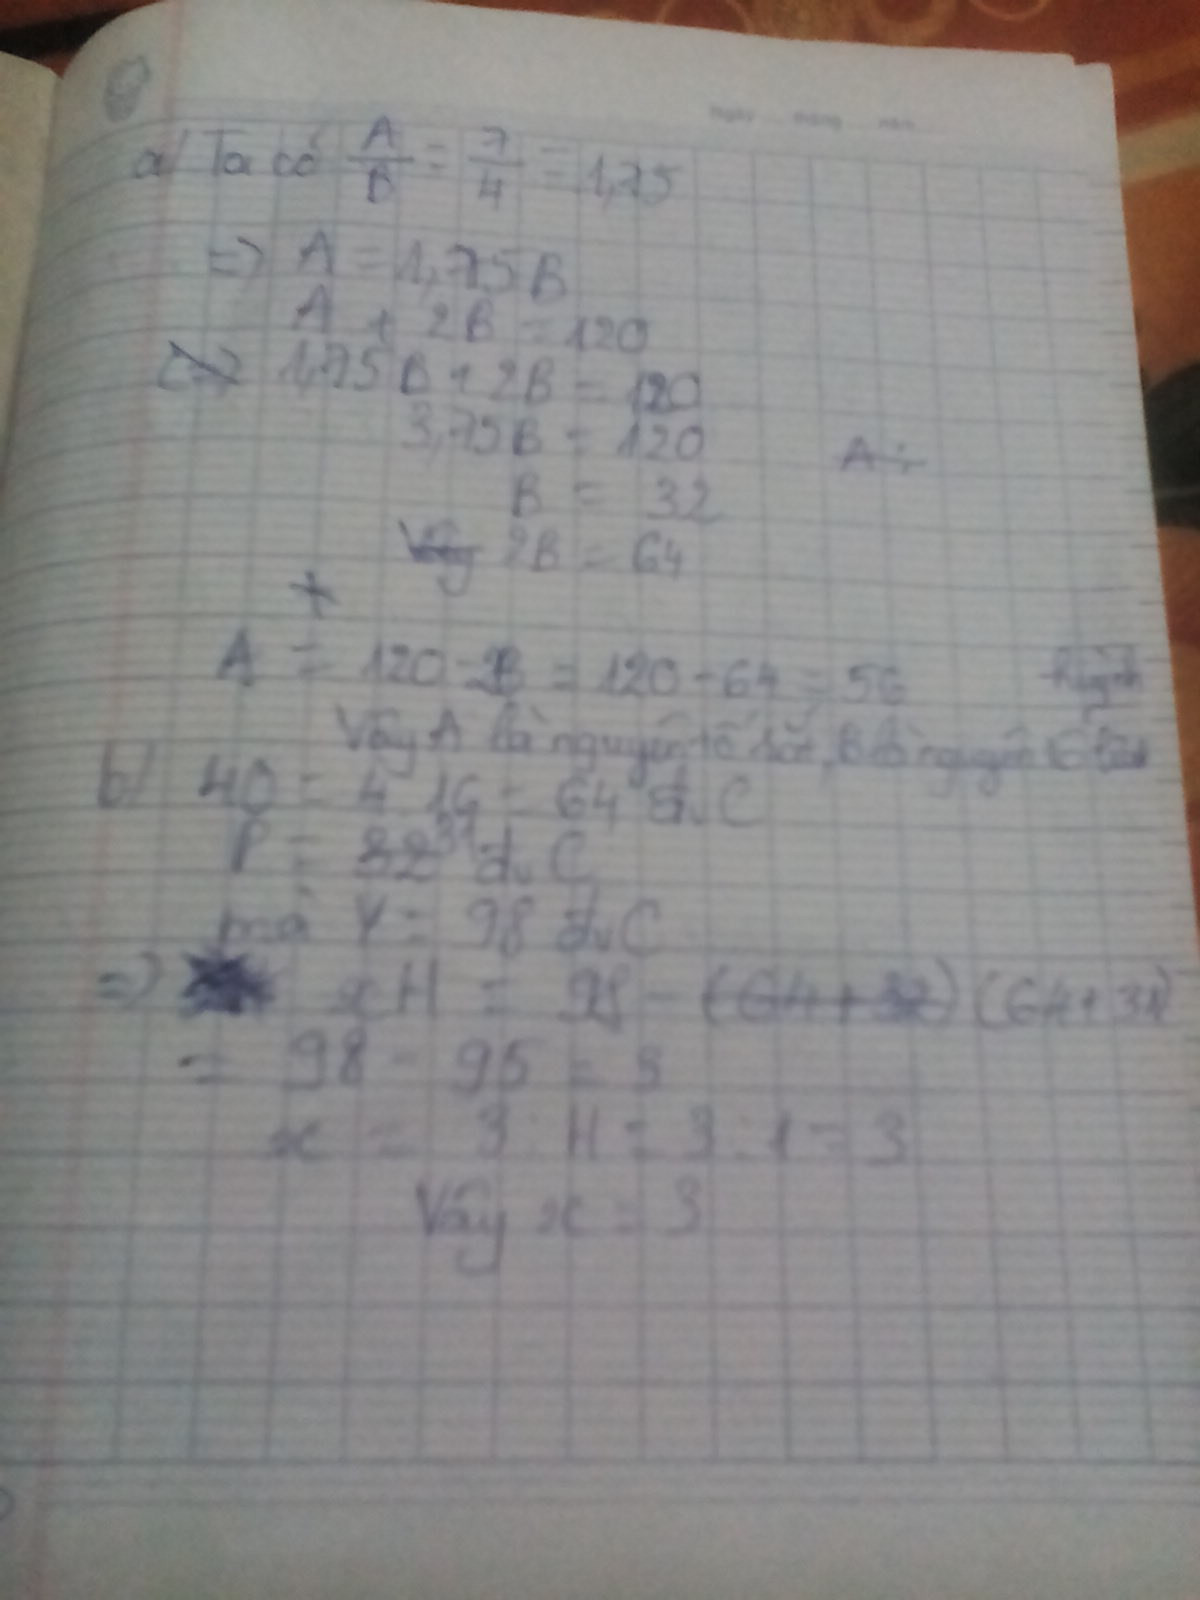 Ngày tháng năm
a/ Ta có A/B = 7/4 = 1,75
=> A = 1,75B
A + 2B = 120
1,75B + 2B = 120
3,75B = 120
A :
B = 32
Vậy 2B = 64
A = 120 - 2B = 120 - 64 = 56
Vậy A là nguyên tố sắt, B là nguyên tố
b/ 4O = 4.16 = 64 đvC
P = 31 đvC
mà Y = 98 đvC
=> xH = 98 - (64 + 32) (64 + 31)
= 98 - 95 = 3
x = 3 : H = 3 : 1 = 3
Vậy x = 3